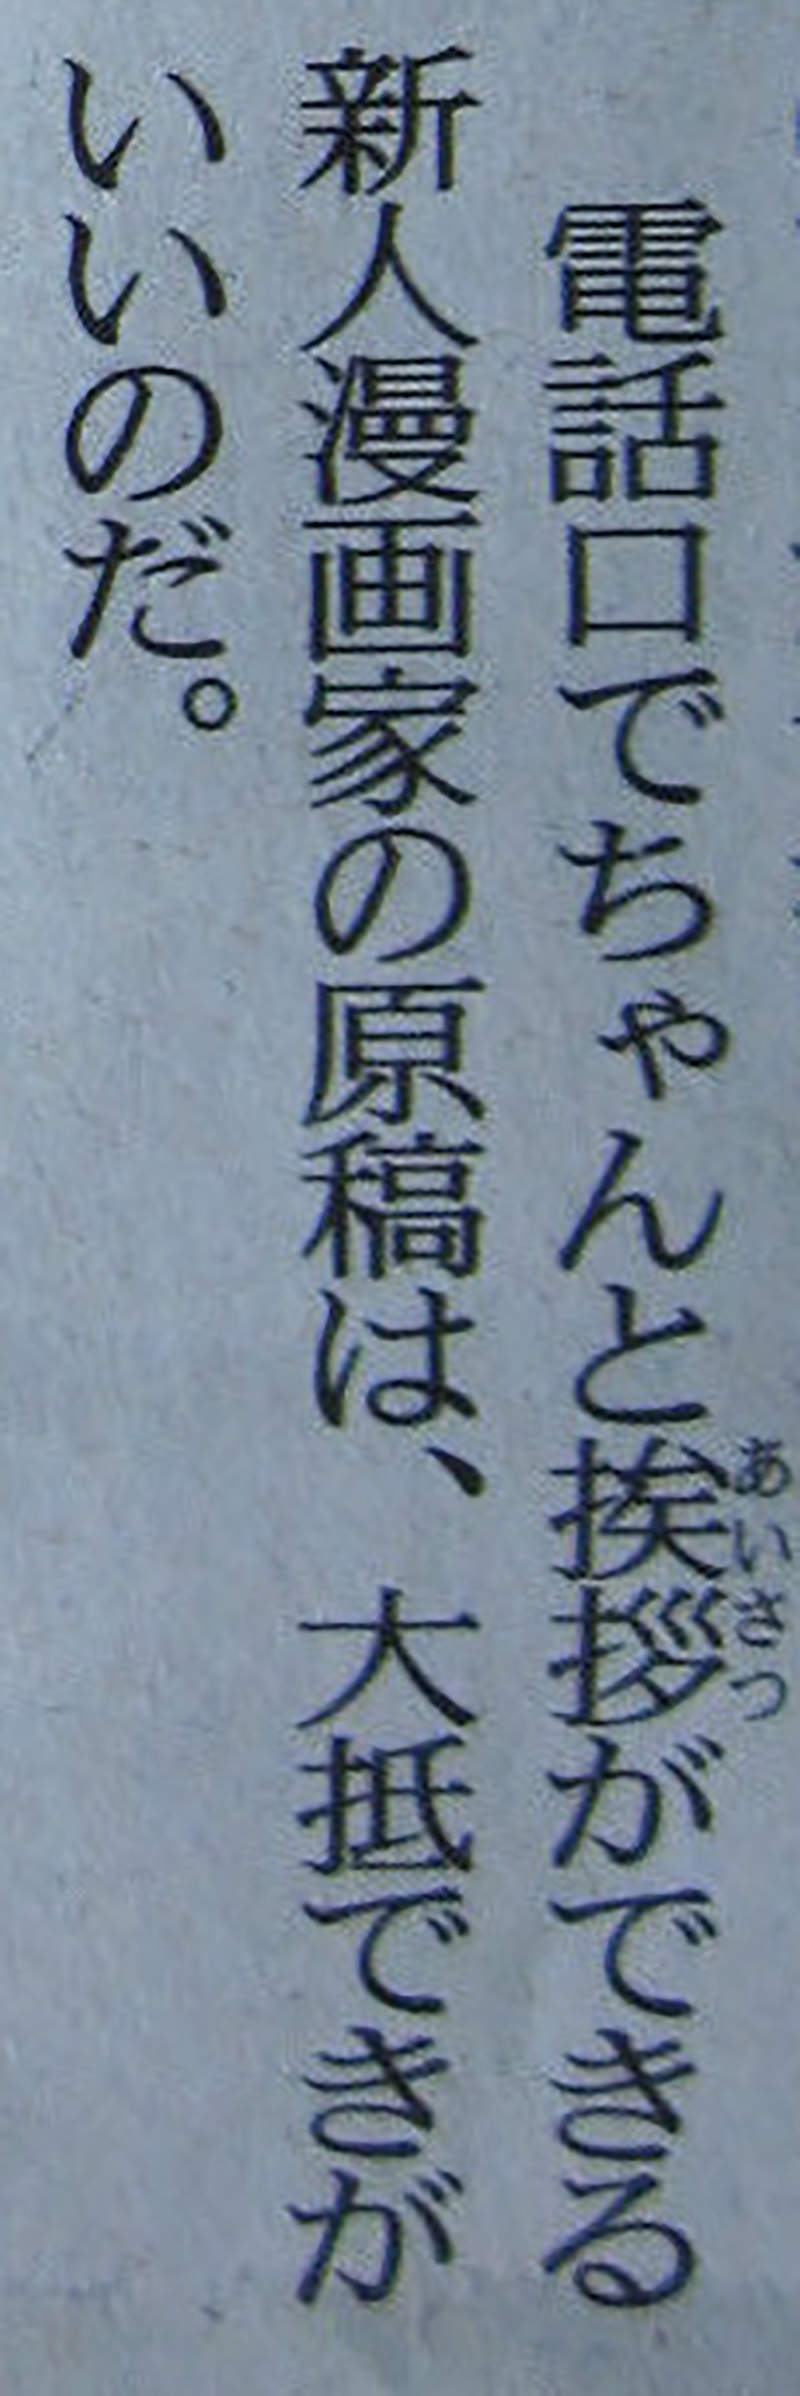 電話口でちゃんと挨拶ができる
新人漫画家の原稿は、大抵できが
いいのだ。
あいさつ